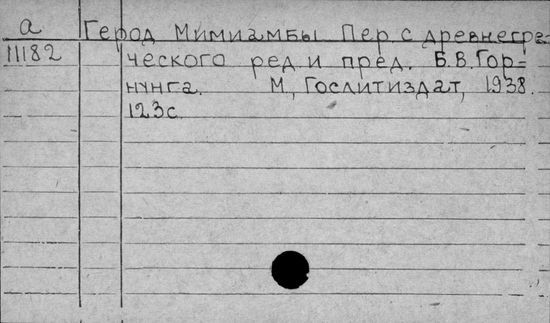 а
Герод Мимиамбы Пер. с древнегре-
11182
ческого ред. и пред. Б.В. Гор-
нунга. М., Гослитиздат, 1938.
123с.